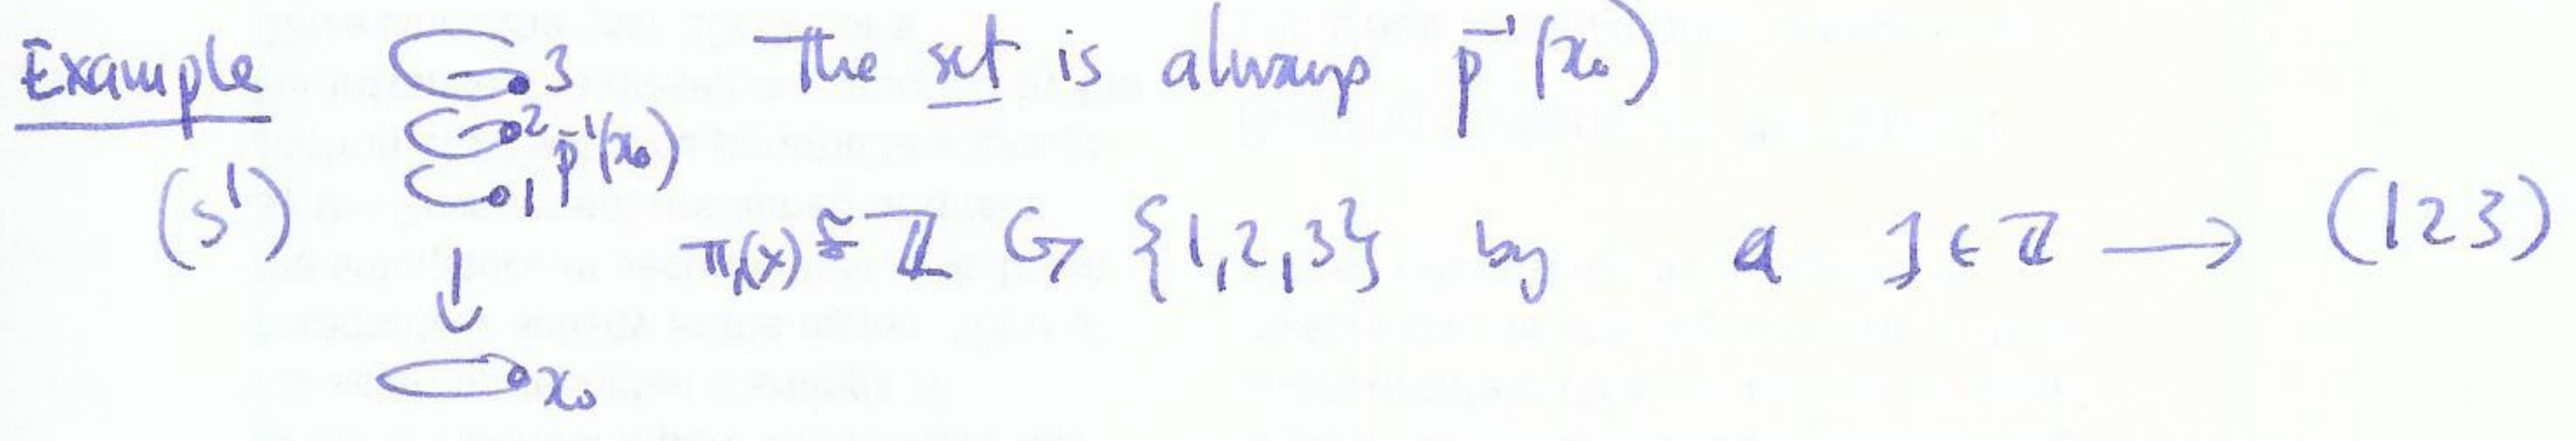 Example 3 The set is always p⁻¹(x₀)
2 p⁻¹(x₀)
(S¹) 1
π₁(X) ≅ ℤ ↻ {1,2,3} by a 1 ∈ ℤ ⟶ (123)
x₀